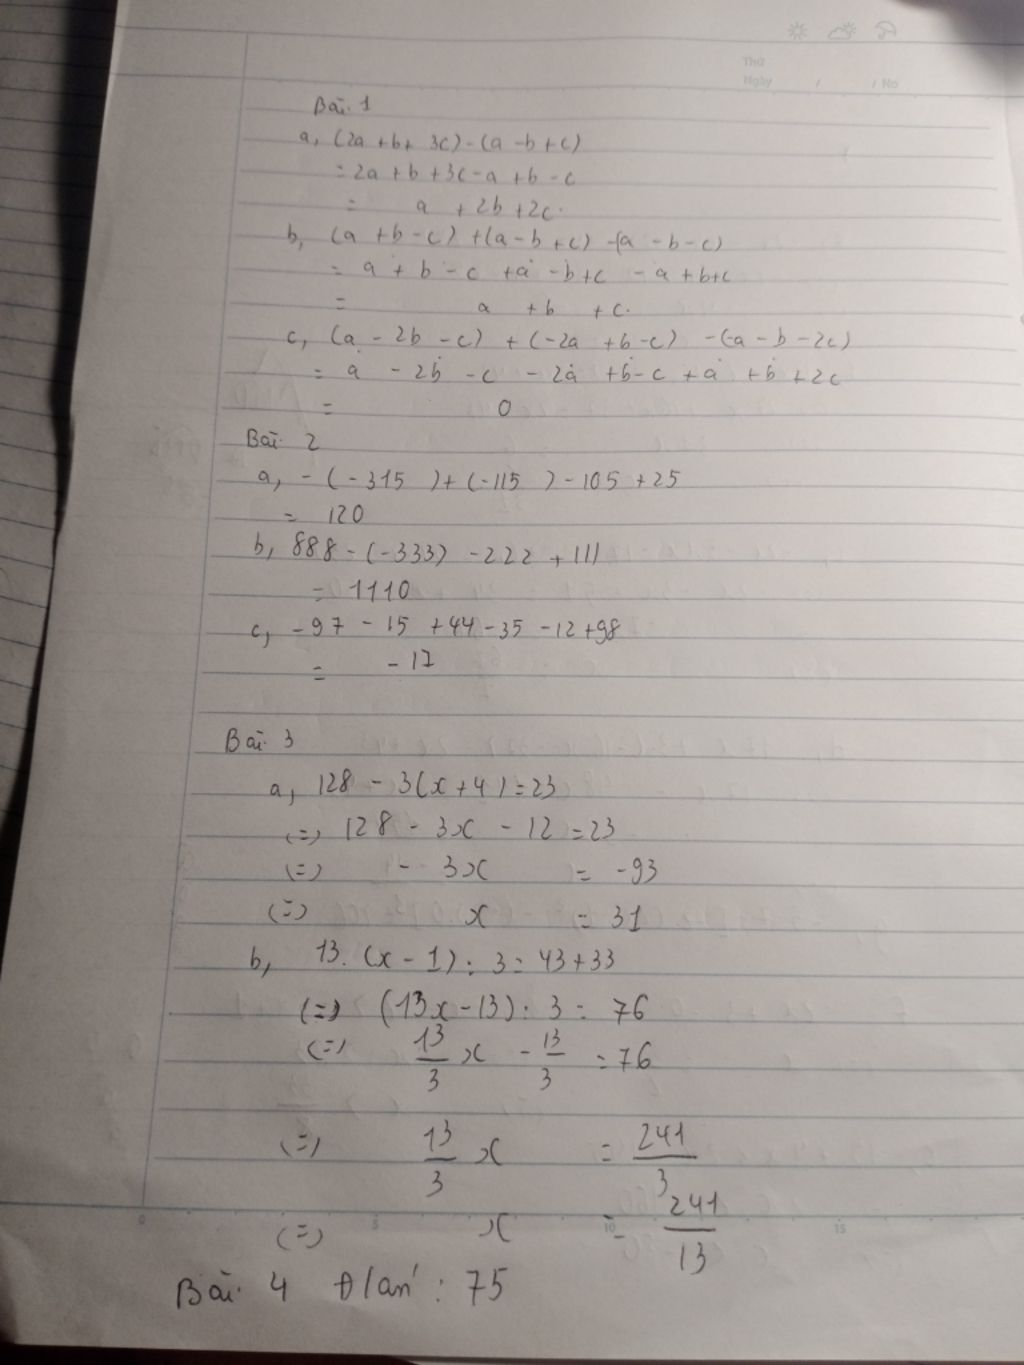 Thứ
Ngày / / No
Bài 1
a, (2a + b + 3c) - (a - b + c)
= 2a + b + 3c - a + b - c
= a + 2b + 2c.
b, (a + b - c) + (a - b + c) - (a - b - c)
= a + b - c + a - b + c - a + b + c
= a + b + c.
c, (a - 2b - c) + (-2a + b - c) - (-a - b - 2c)
= a - 2b - c - 2a + b - c + a + b + 2c
= 0
Bài 2
a, - (-315) + (-115) - 105 + 25
= 120
b, 888 - (-333) - 222 + 111
= 1110
c, -97 - 15 + 44 - 35 - 12 + 98
= -17
Bài 3
a, 128 - 3(x + 4) = 23
(=) 128 - 3x - 12 = 23
(=) - 3x = -93
(=) x = 31
b, 13. (x - 1) : 3 = 43 + 33
(=) (13x - 13) : 3 = 76
(=) 13/3 x - 13/3 = 76
(=) 13/3 x = 241/3
(=) x = 241/13
0 5 10 15
Bài 4 Đ/án : 75